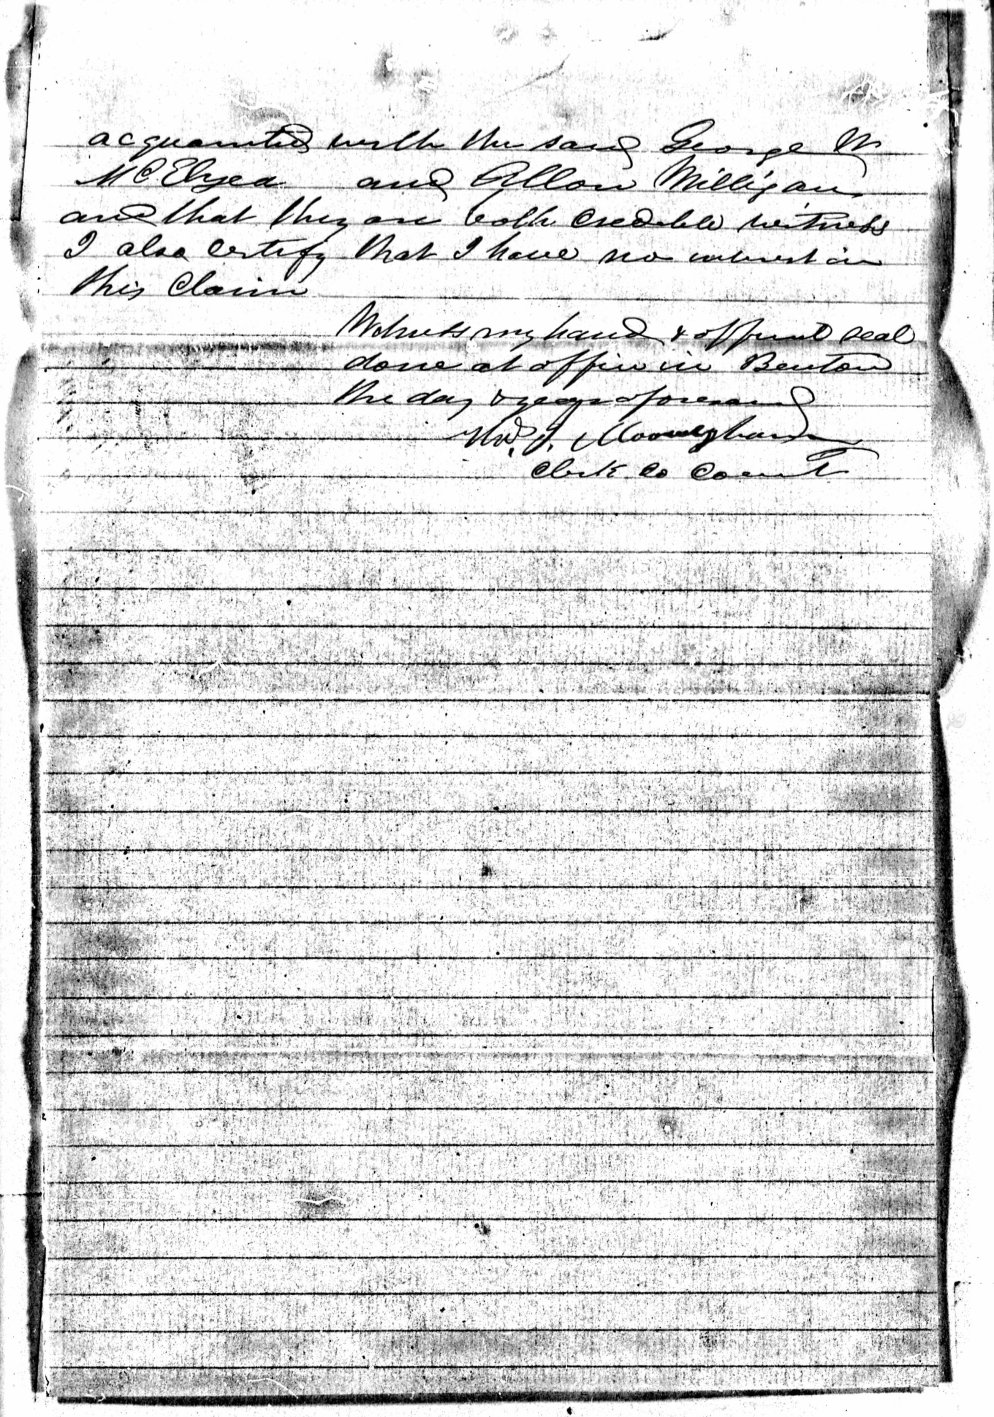 acquainted with the said George W
McElyea and Allon Milligan
and that they are both credible witness
I also certify that I have no interest in
this Claim
Witness my hand & official seal
done at office in Benton
the day & year aforesaid
Clerk Co Court